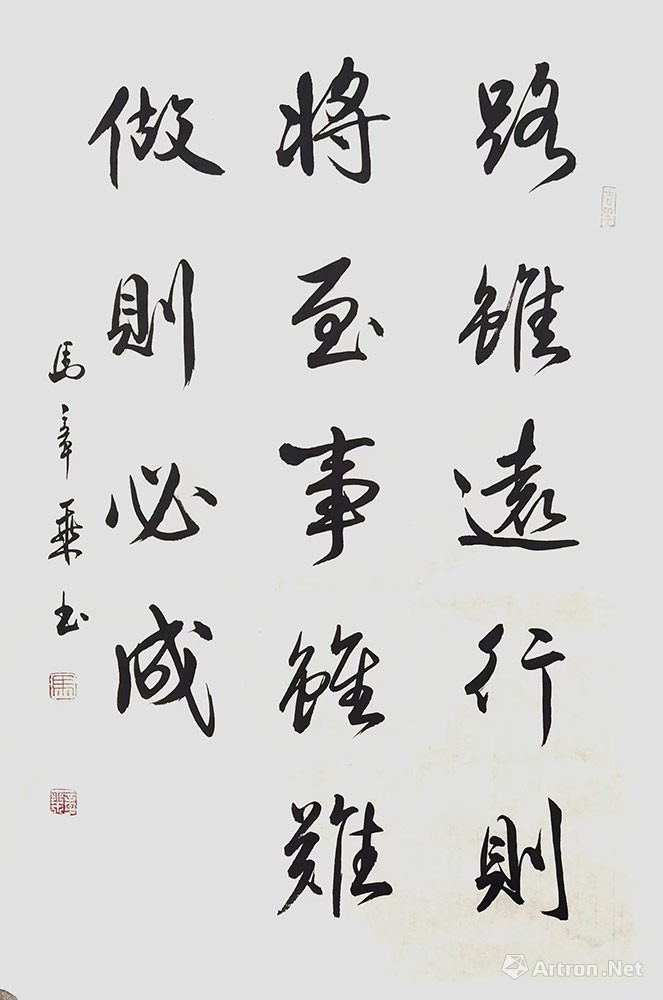 路雖遠行則
將至事雖難
做則必成
馬章乘书
Artron.Net